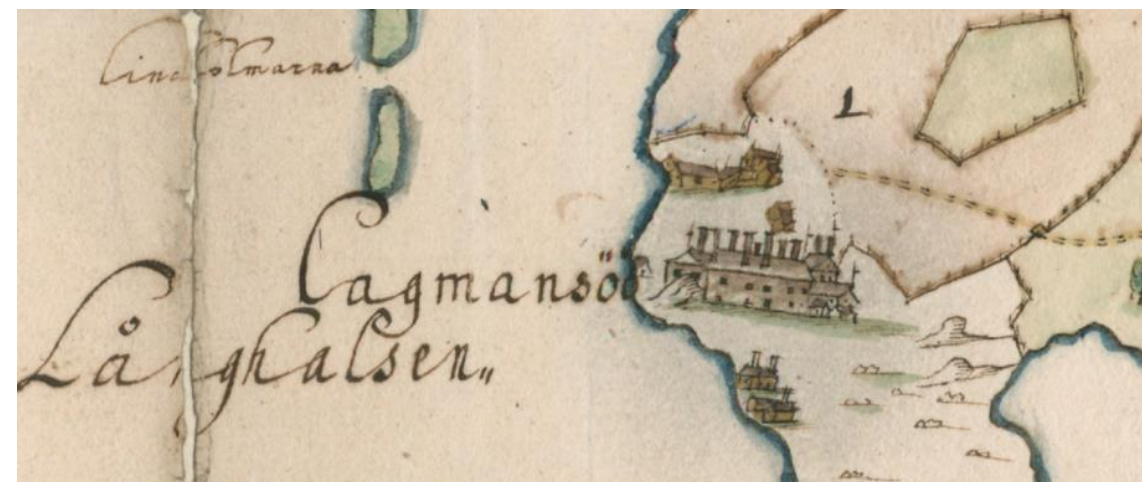 Lindholmarna
L
Lagmansöö
Långhalsen„